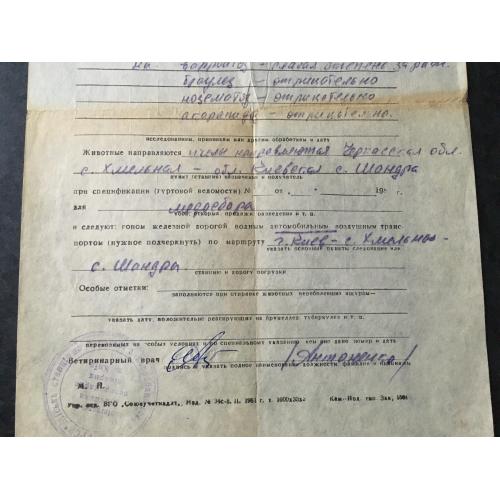 на варроатоз – слабая степень зараж.
браулез – отрицательно
нозематоз – отрицательно
акарапидоз – отрицательно.
исследованиям, прививкам или другим обработкам и дату
Животные направляются пчелы направляются Черкасская обл.
с. Хмельная – обл. Киевская с. Шандра
пункт (станцию) назначения и получатель
при спецификации (гуртовой ведомости) № от „ “ 19 г.
для медосбора
убоя, откорма, продажи, разведения и т. п.
и следуют: гоном железной дорогой водным автомобильным воздушным транс-
портом (нужное подчеркнуть) по маршруту г. Киев – с. Хмельная –
указать основные пункты следования или
с. Шандра
станцию и дорогу погрузки
Особые отметки:
заполняются при отправке животных переболевших ящуром—
указать дату, положительно реагирующих на бруцеллез, туберкулез и т. п.
перевозимых на особых условиях и по специальному указанию кем оно дано номер и дата
Ветеринарный врач /Антоненко/
подпись и указать полное наименование должности, фамилию и инициалы
М. П.
Упр. изд. ВГО „Союзучетиздат„